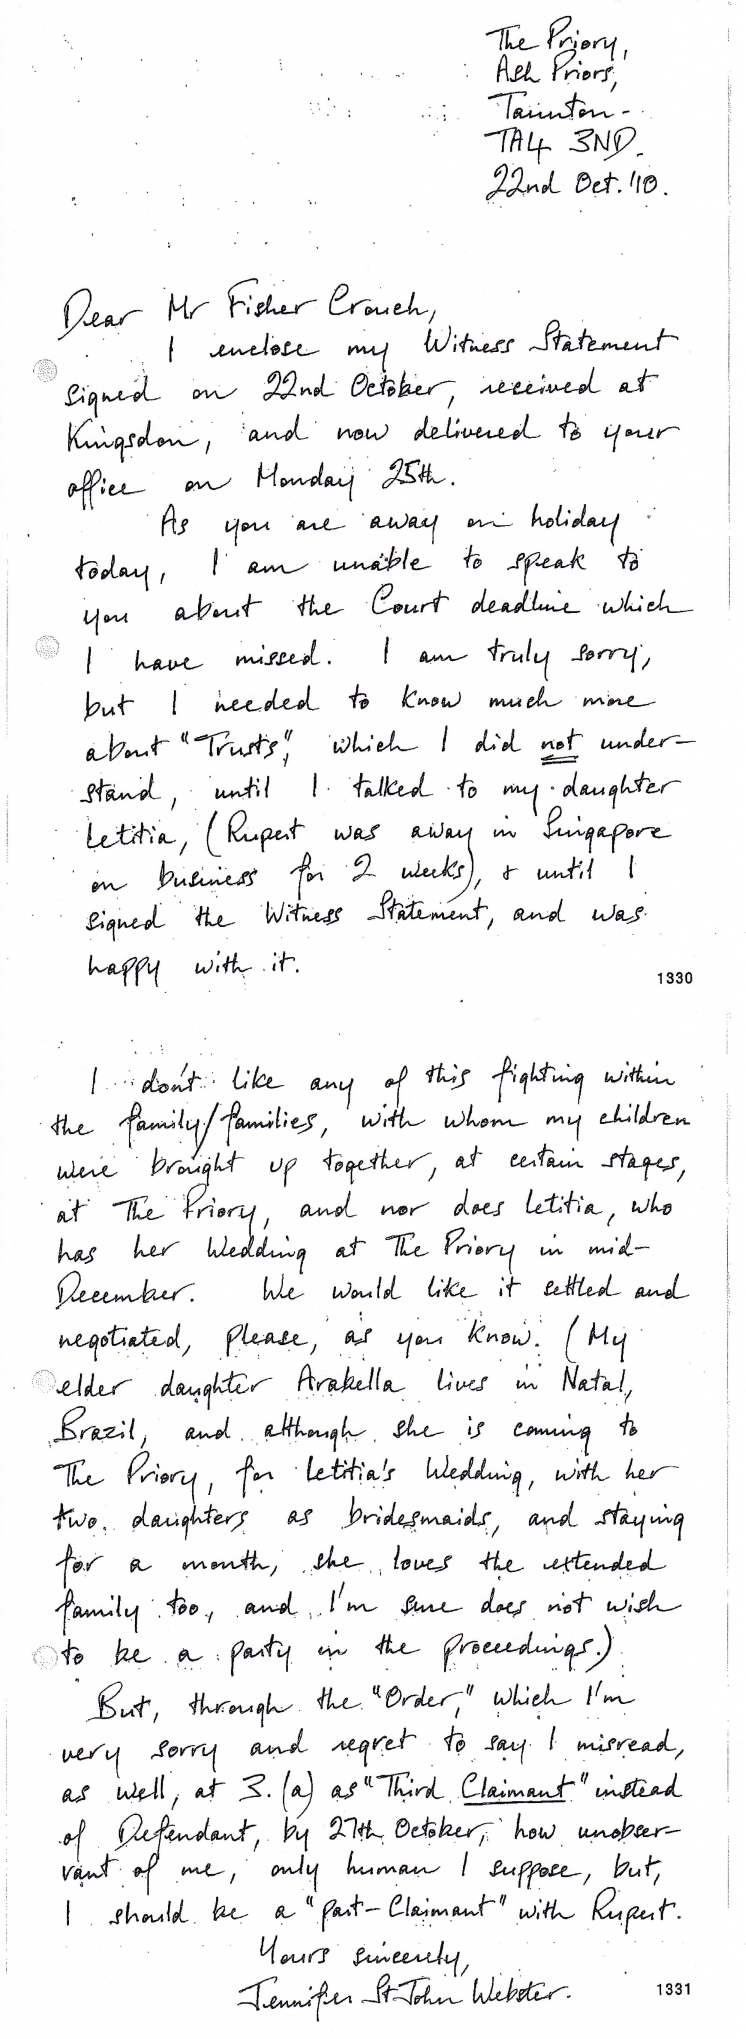 The Priory,
Ash Priors,
Taunton -
TA4 3ND.
22nd Oct. '10.
Dear Mr Fisher Crouch,
I enclose my Witness Statement
signed on 22nd October, received at
Kingsdon, and now delivered to your
office on Monday 25th.
As you are away on holiday
today, I am unable to speak to
you about the Court deadline which
I have missed. I am truly sorry,
but I needed to know much more
about "Trusts", which I did not under-
stand, until I talked to my daughter
Letitia, (Rupert was away in Singapore
on business for 2 weeks), & until I
signed the Witness Statement, and was
happy with it.
1330
I don't like any of this fighting within
the family/families, with whom my children
were brought up together, at certain stages,
at The Priory, and nor does Letitia, who
has her Wedding at The Priory in mid-
December. We would like it settled and
negotiated, please, as you know. (My
elder daughter Arabella lives in Natal,
Brazil, and although she is coming to
The Priory, for Letitia's Wedding, with her
two daughters as bridesmaids, and staying
for a month, she loves the extended
family too, and I'm sure does not wish
to be a party in the proceedings.)
But, through the "Order," which I'm
very sorry and regret to say I misread,
as well, at 3. (a) as "Third Claimant" instead
of Defendant, by 27th October, how unobser-
vant of me, only human I suppose, but,
I should be a "part-Claimant" with Rupert.
Yours sincerely,
Jennifer St John Webster.
1331